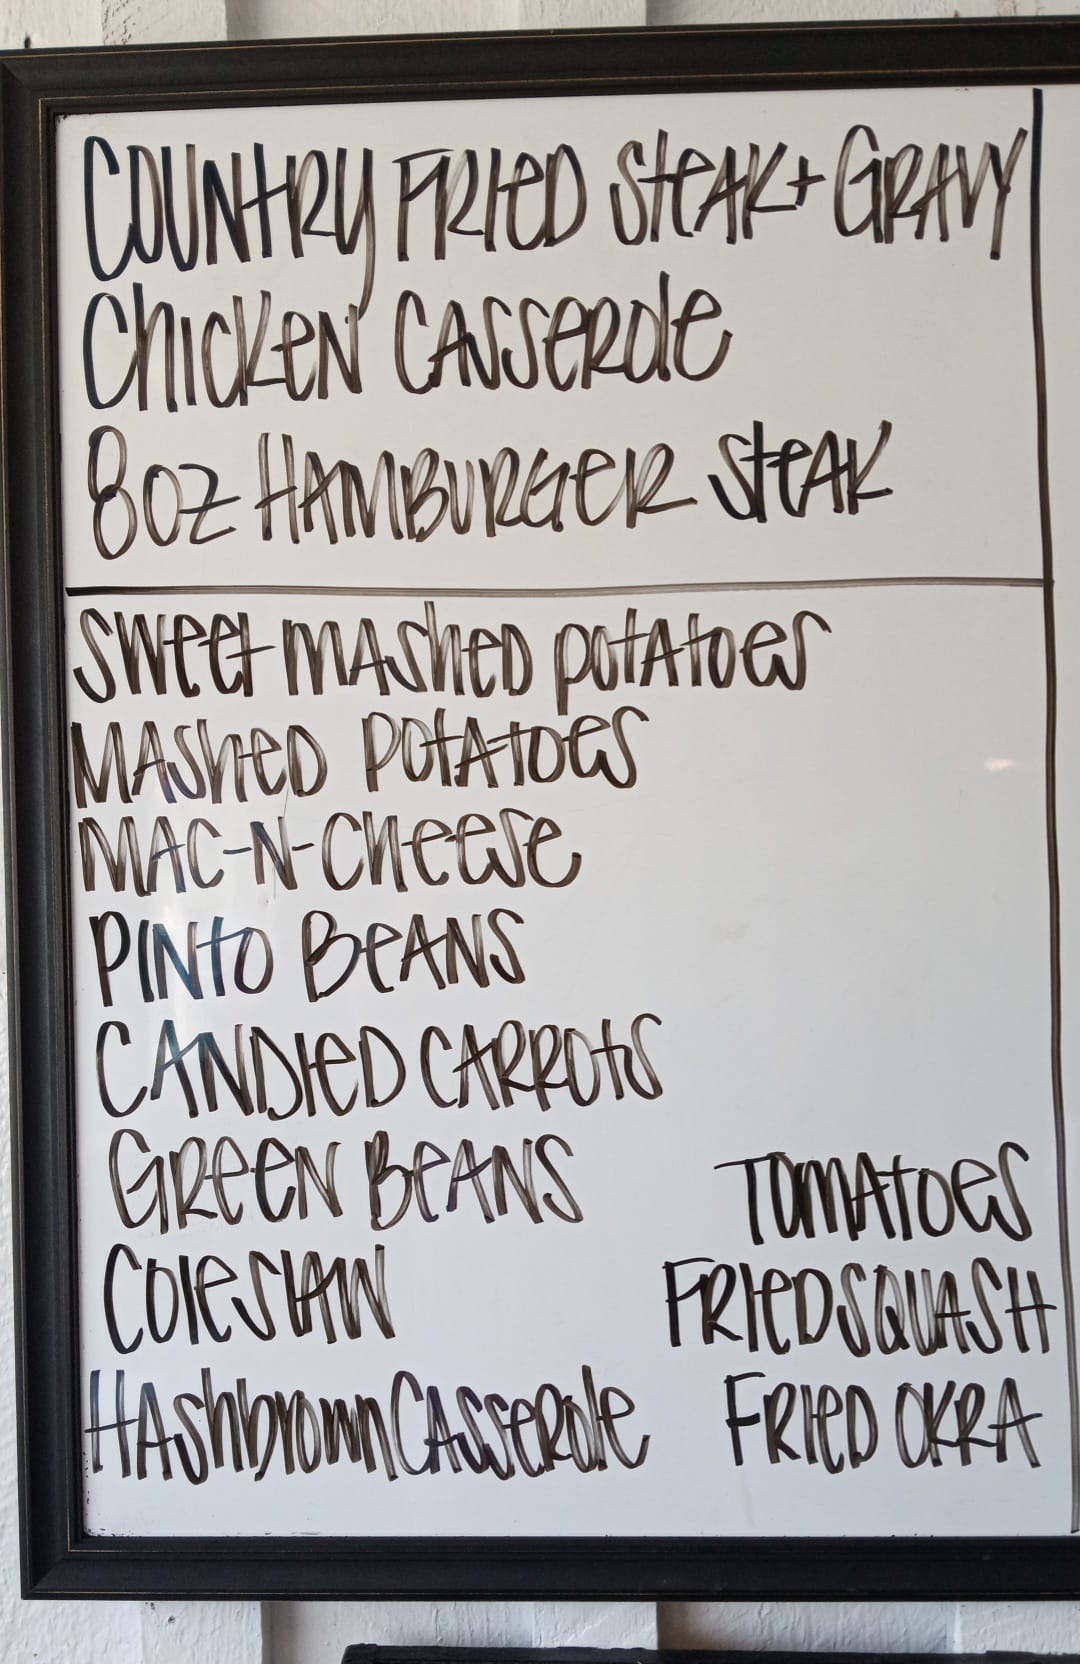 COUNTRY FRIED STEAK + GRAVY
CHICKEN CASSEROLE
8OZ HAMBURGER STEAK
SWEET MASHED POTATOES
MASHED POTATOES
MAC-N-CHEESE
PINTO BEANS
CANDIED CARROTS
GREEN BEANS
COLESLAW
HASHBROWN CASSEROLE
TOMATOES
FRIED SQUASH
FRIED OKRA